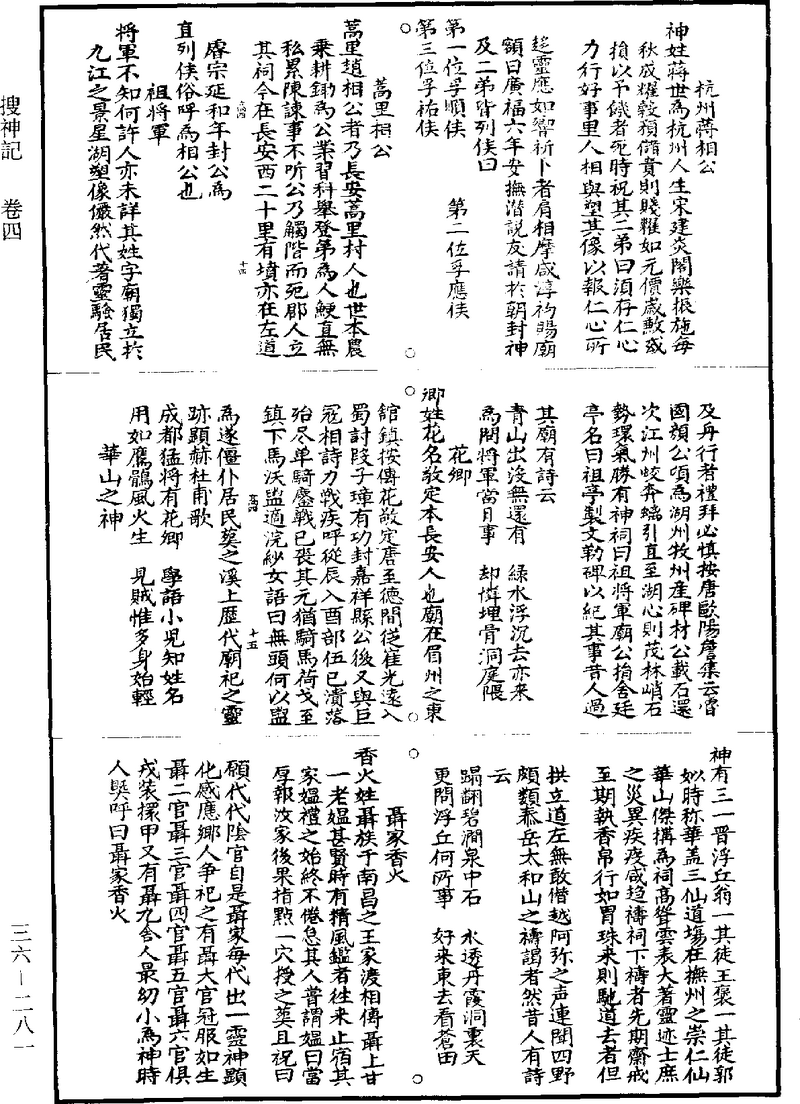 搜神記　卷四
杭州蔣相公
神姓蔣世為杭州人生宋建炎間樂振施每
秋成糴穀預儲貴則賤糶如元價歲歉或
捐以予饑者死時祝其二弟曰須存仁心
力行好事里人相與塑其像以報仁心所
趂靈應如響祈卜者肩相摩咸淳初賜廟
額曰廣福六年安撫潛說友請於朝封神
及二弟皆列侯曰
第一位孚順侯　第二位孚應侯
第三位孚祐侯
蒿里相公
蒿里趙相公者乃長安蒿里村人也世本農
乗耕鋤為公業習科舉登第為人鯁直無
私累陳諫事不听公乃觸階而死郡人立
其祠今在長安西二十里有墳亦在左道
十四
唐宗延和年封公為
直列侯俗呼為相公也
祖將軍
將軍不知何許人亦未詳其姓字廟獨立於
九江之景星湖塑像儼然代著靈驗居民
及舟行者禮拜必慎按唐歐陽詹集云曾
國顏公頃為湖州牧州產碑材公載石還
次江州峻奔蟠引直至湖心則茂林峭石
勢環氣勝有神祠曰祖將軍廟公捐舍廷
亭名曰祖亭製文勒碑以紀其事昔人過
其廟有詩云
青山出沒無還有　綠水浮沉去亦来
為問將軍當日事　却憐埋骨洞庭隈
花卿
卿姓花名敬定本長安人也廟在眉州之東
舘鎮按傳花敬定唐至德間從崔光遠入
蜀討段子璋有功封嘉祥縣公後又與巨
冦相詩力戰疾呼從辰入酉部伍已潰落
殆尽单騎鏖戰已丧其元猶騎馬荷戈至
鎮下馬沃盥適浣紗女語曰無頭何以盥
十五
為遂僵仆居民葬之溪上歷代廟祀之靈
跡顯赫杜甫歌
成都猛將有花卿　學語小児知姓名
用如鷹鶻風火生　見賊惟多身始輕
華山之神
神有三一晋浮丘翁一其徒王褒一其徒郭
姒時称華盖三仙道塲在撫州之崇仁仙
華山傑搆為祠高聳雲表大著靈迹士庶
之災異疾疫咸趋禱祠下禱者先期齋戒
至期執香帛行如冐珠来則馳道去者但
拱立道左無敢僣越阿弥之声連聞四野
頗類泰岳太和山之禱謁者然昔人有詩
云
蹋翻碧澗泉中石　水透丹霞洞裏天
更問浮丘何所事　好来東去看蒼田
聶家香火
香火姓聶族于南昌之王家渡相傳聶上廿
一老媼甚賢時有精風鑑者徃来止宿其
家媼禮之始終不倦怠其人嘗謂媼曰當
厚報汝家後果指點一穴授之葬且祝曰
願代代陰官自是聶家每代出一靈神顯
化感應鄉人争祀之有聶大官冠服如生
聶二官聶三官聶四官聶五官聶六官俱
戎装擐甲又有聶九舍人最幼小為神時
人㒺呼曰聶家香火
三六—二八一